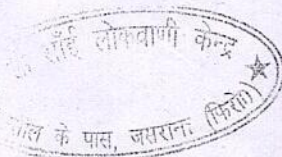 साँई लोकवाणी केन्द्र
के पास, जसराना (फिरो०)